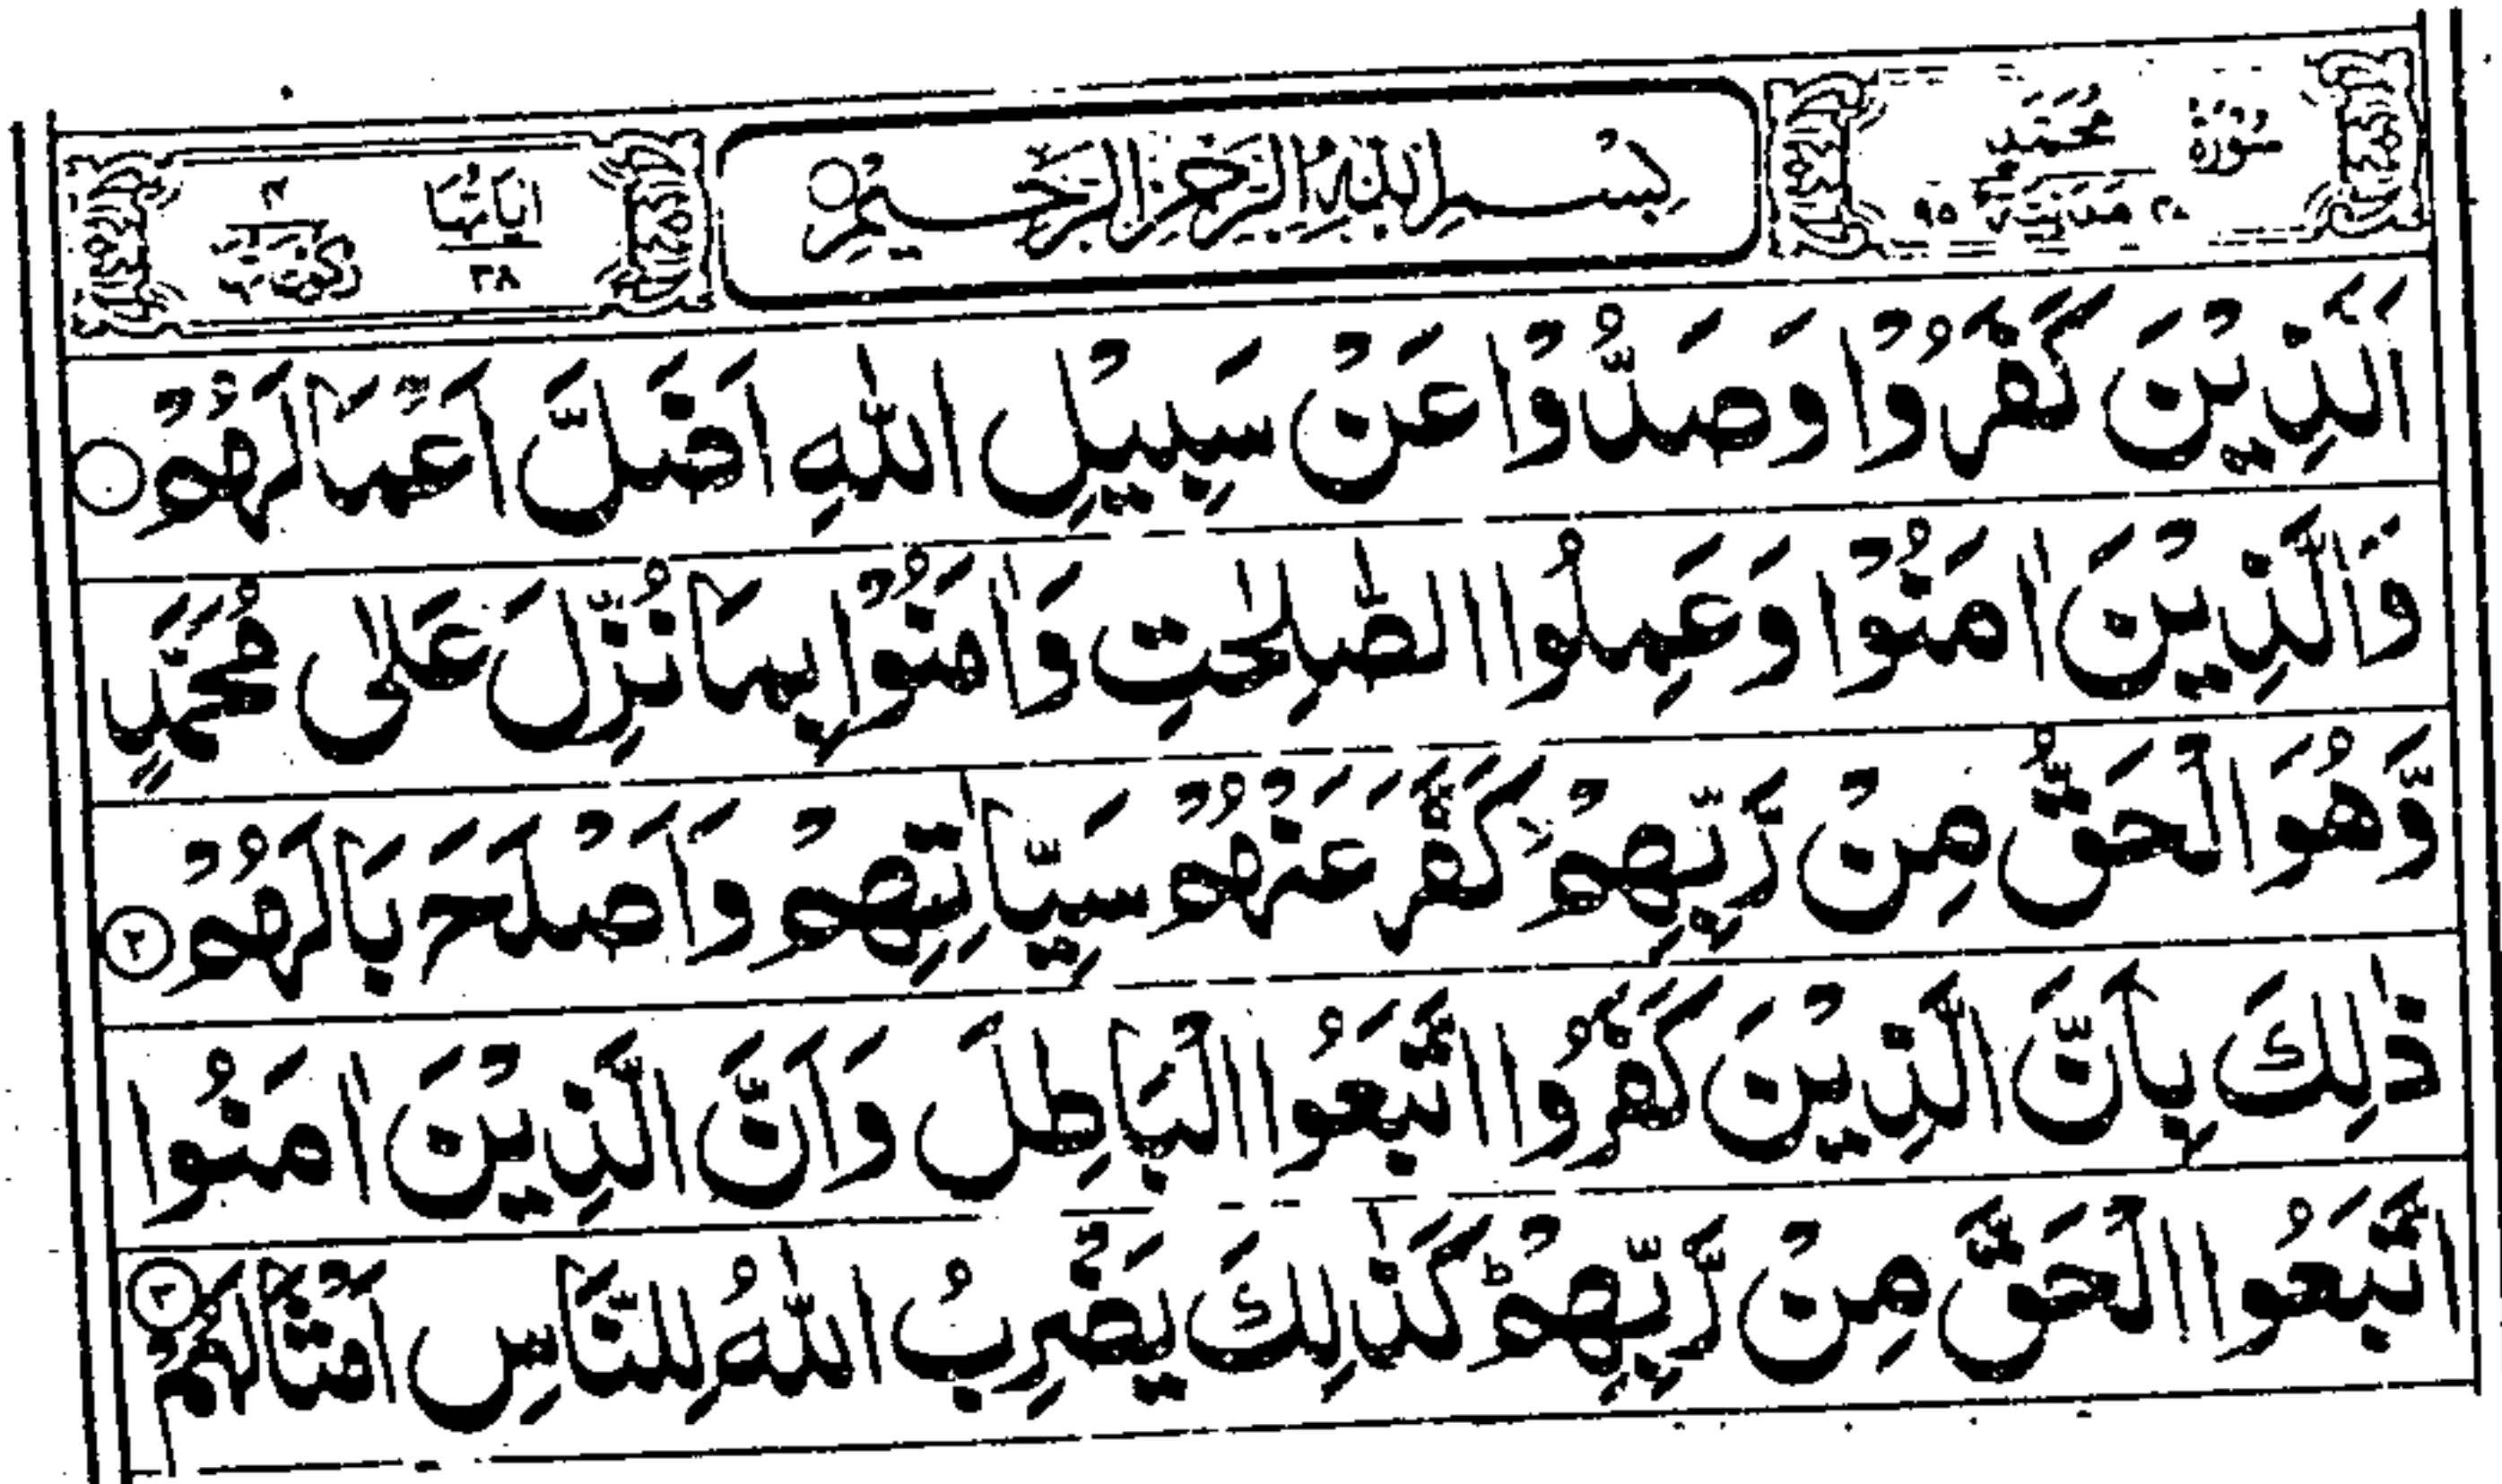 سُوْرَةُ مُحَمَّدٍ مَدَنِيَّةٌ ٩٥
بِسْمِ اللّٰهِ الرَّحْمٰنِ الرَّحِيْمِ
اٰيَاتُهَا ٣٨ ٤
اَلَّذِيْنَ كَفَرُوْا وَصَدُّوْا عَنْ سَبِيْلِ اللّٰهِ اَضَلَّ اَعْمَالَهُمْ
وَالَّذِيْنَ اٰمَنُوْا وَعَمِلُوا الصّٰلِحٰتِ وَاٰمَنُوْا بِمَا نُزِّلَ عَلٰى مُحَمَّدٍ
وَّهُوَ الْحَقُّ مِنْ رَّبِّهِمْ كَفَّرَ عَنْهُمْ سَيِّاٰتِهِمْ وَاَصْلَحَ بَالَهُمْ ٢
ذٰلِكَ بِاَنَّ الَّذِيْنَ كَفَرُوا اتَّبَعُوا الْبَاطِلَ وَاَنَّ الَّذِيْنَ اٰمَنُوا
اتَّبَعُوا الْحَقَّ مِنْ رَّبِّهِمْ ؕ كَذٰلِكَ يَضْرِبُ اللّٰهُ لِلنَّاسِ اَمْثَالَهُمْ ٣